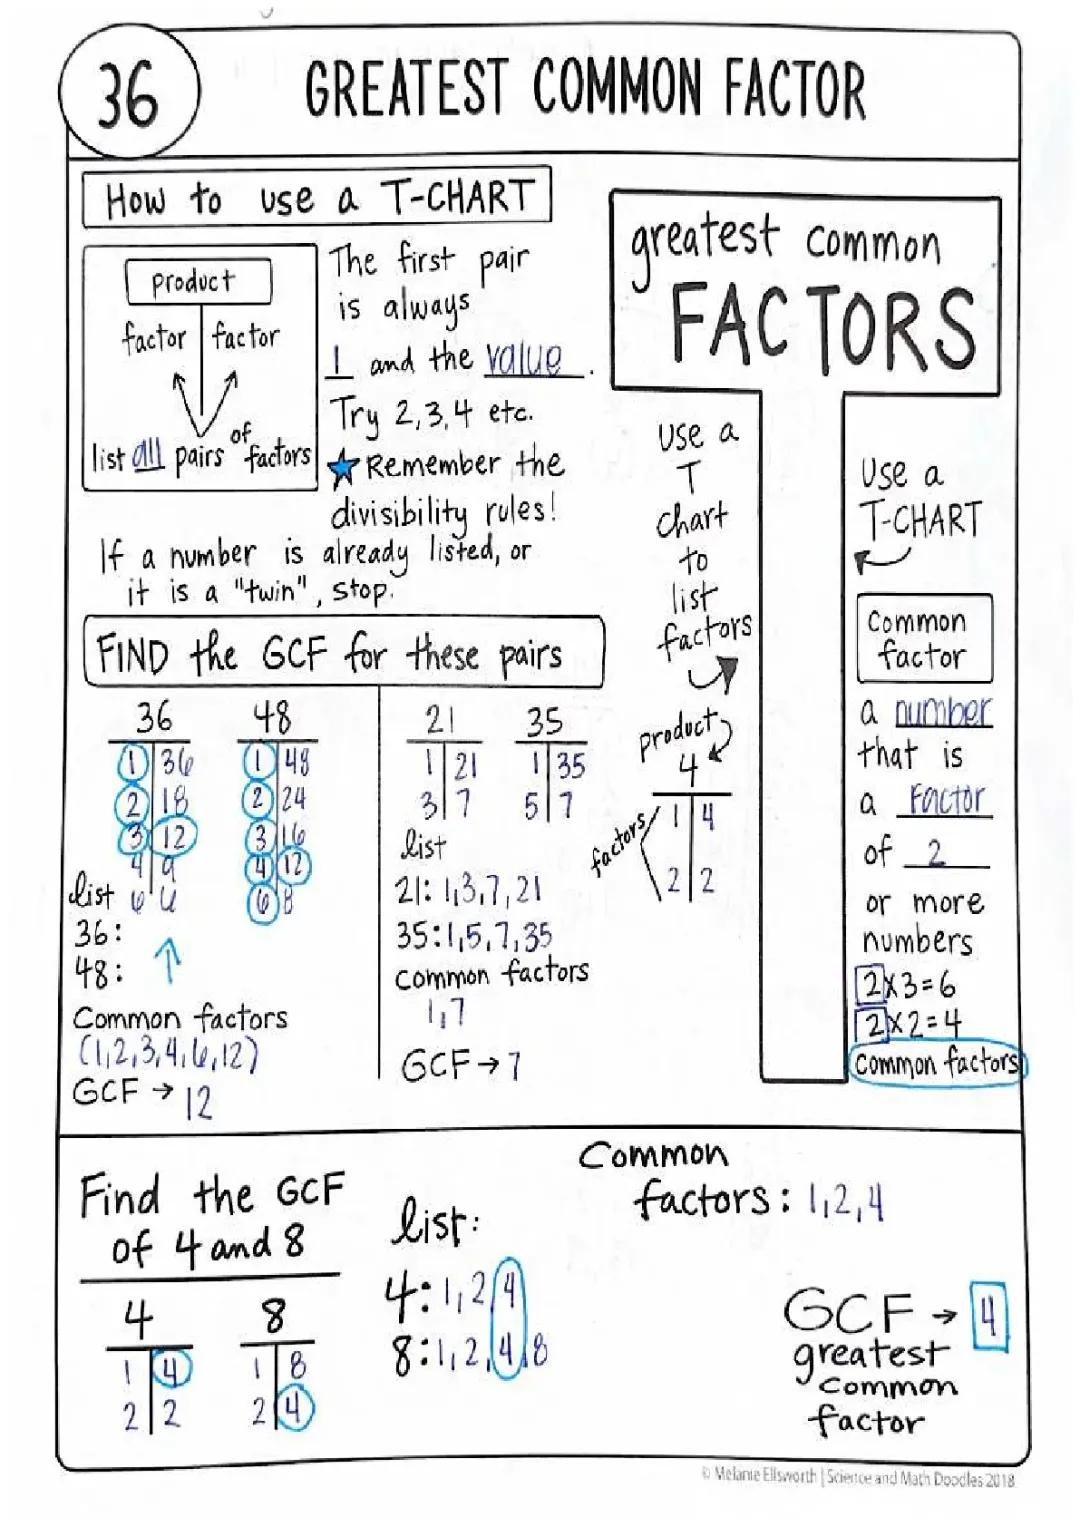 36
GREATEST COMMON FACTOR
How to use a T-CHART
product
factor factor
list all pairs of factors
The first pair
is always
1 and the value.
Try 2,3,4 etc.
Remember the
divisibility rules!
If a number is already listed, or
it is a "twin", stop.
greatest common
FACTORS
use a
T
chart
to
list
factors
product
4
factors
1 4
2 2
Use a
T-CHART
Common
factor
a number
that is
a Factor
of 2
or more
numbers
2x3=6
2x2=4
Common factors
FIND the GCF for these pairs
36
1 36
2 18
3 12
4 9
6 6
48
1 48
2 24
3 16
4 12
6 8
list
36:
48:
Common factors
(1,2,3,4,6,12)
GCF → 12
21
1 21
3 7
35
1 35
5 7
list
21: 1,3,7,21
35: 1,5,7,35
common factors
1,7
GCF → 7
Find the GCF
of 4 and 8
4
1 4
2 2
8
1 8
2 4
list:
4: 1, 2, 4
8: 1, 2, 4, 8
Common
factors: 1, 2, 4
GCF → 4
greatest
common
factor
© Melanie Ellsworth | Science and Math Doodles 2018